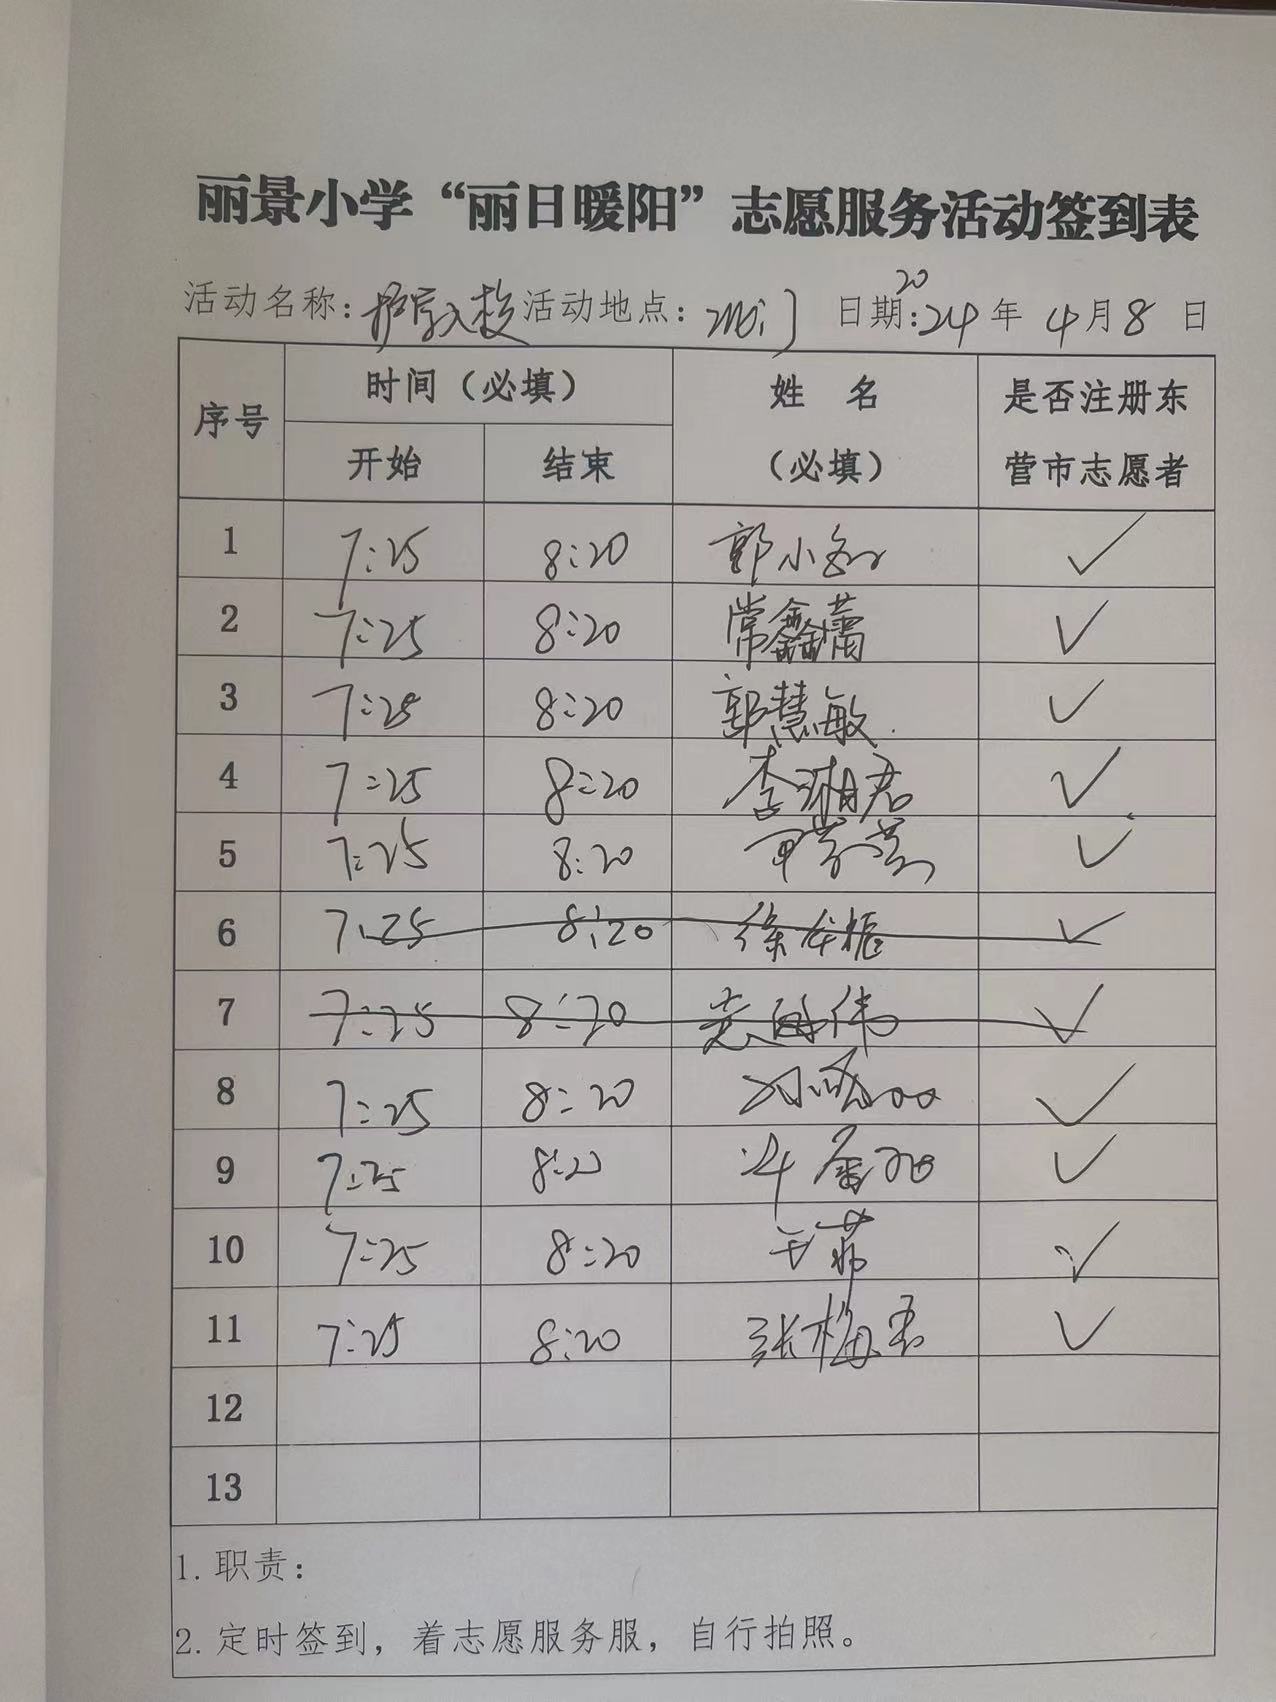 丽景小学“丽日暖阳”志愿服务活动签到表
活动名称：护学入校 活动地点： 日期：2024年4月8日
序号 时间（必填） 姓 名（必填） 是否注册东营市志愿者
开始 结束
1 7:25 8:20 郭小 ✓
2 7:25 8:20 常鑫蕾 ✓
3 7:25 8:20 郭慧敏 ✓
4 7:25 8:20 李湘君 ✓
5 7:25 8:20 ✓
6 7:25 8:20 徐 振 ✓
7 7:25 8:20 伟 ✓
8 7:25 8:20 ✓
9 7:25 8:20 ✓
10 7:25 8:20 ✓
11 7:25 8:20 张梅 ✓
12
13
1. 职责：
2. 定时签到，着志愿服务服，自行拍照。